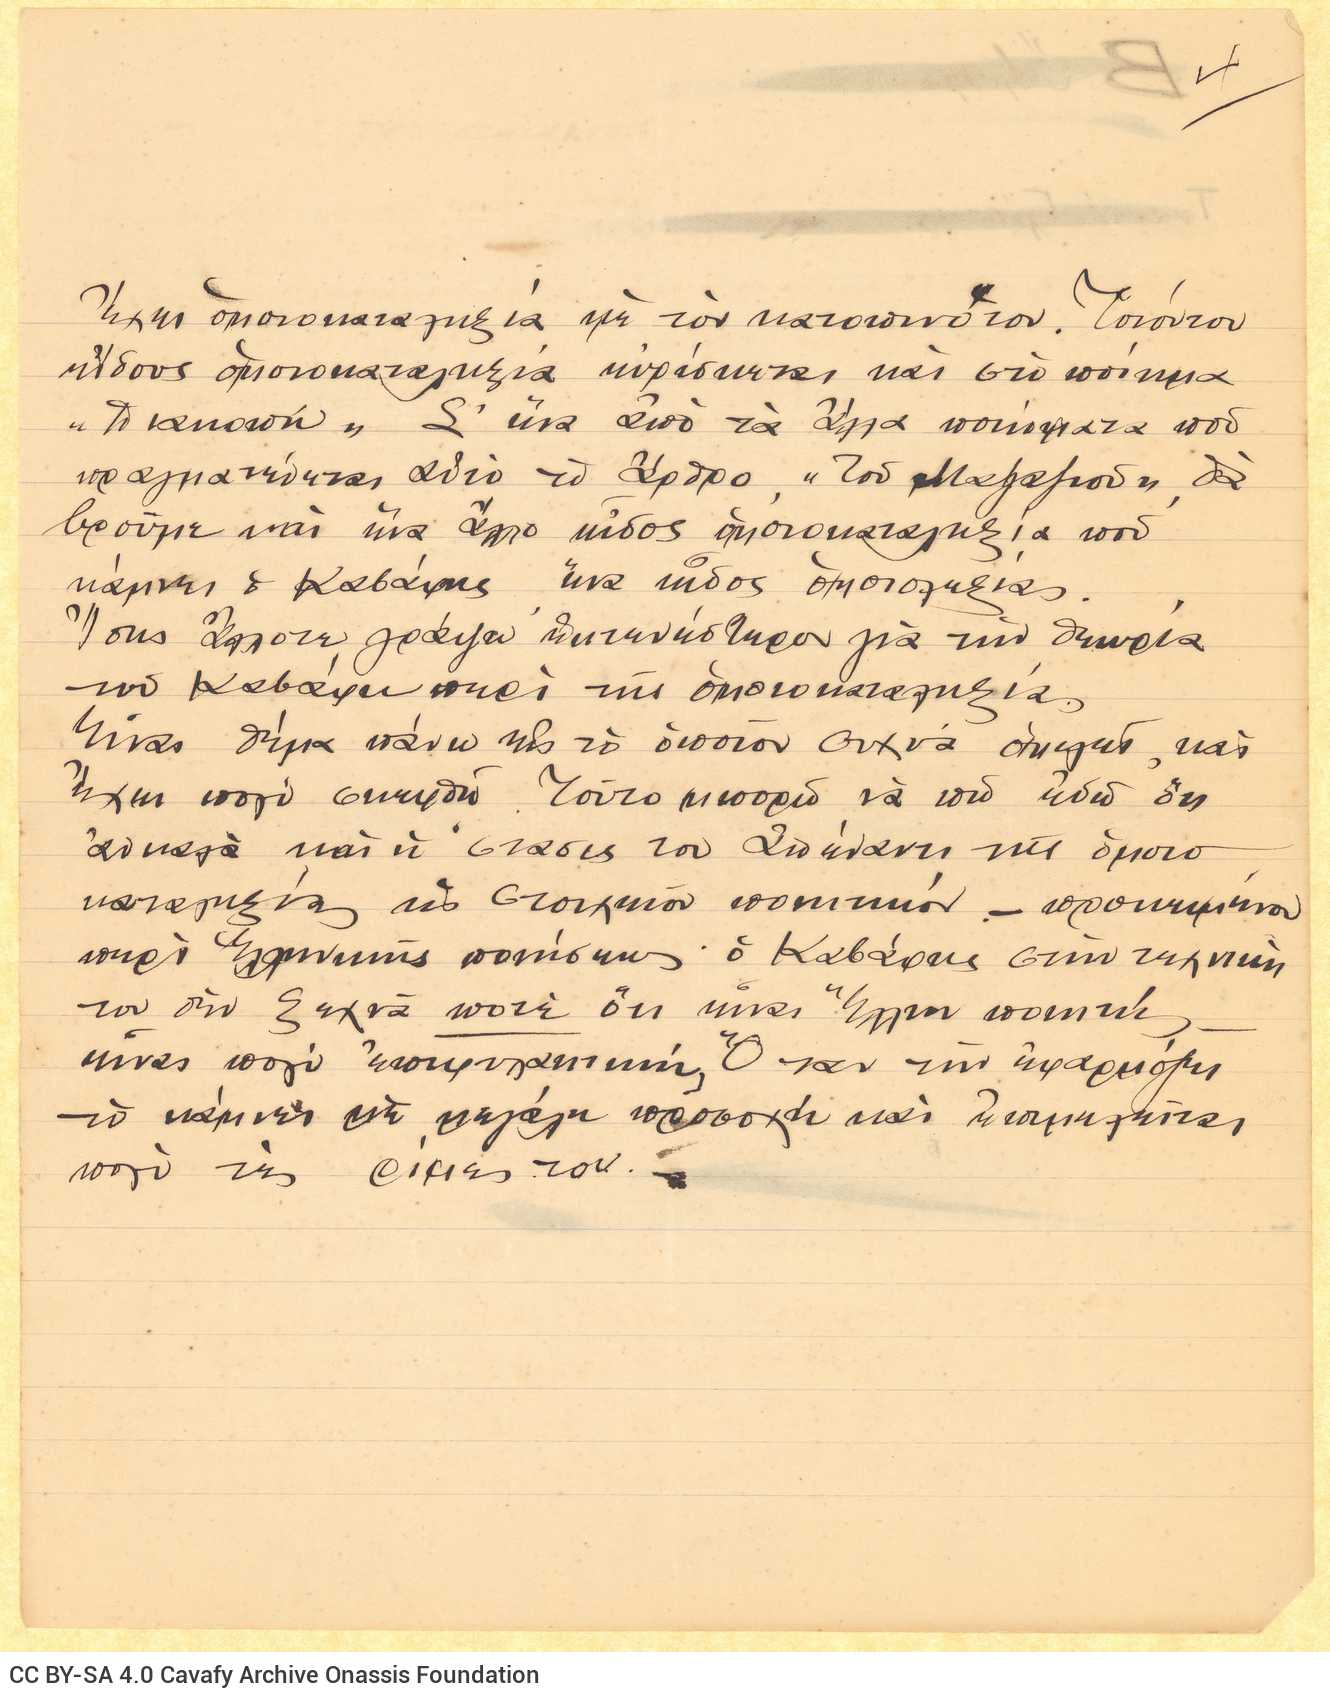 4
ἔχει ὁμοιοκαταληξία μὲ τὸν κατοπινό του. Τοιούτου
εἴδους ὁμοιοκαταληξία εὑρίσκεται καὶ στὸ ποίημα
«Διακοπή» Σ' ἕνα ἀπὸ τὰ ἄλλα ποιήματα ποῦ
πραγματεύεται αὐτὸ τὸ ἄρθρο, «Τοῦ Μαγαζιοῦ», θὰ
βροῦμε καὶ ἕνα ἄλλο εἶδος ὁμοιοκαταληξία ποῦ
κάμνει ὁ Καβάφης, ἕνα εἶδος ὁμοιοληξίας.
Ἴσως ἄλλοτε γράψω ἐκτενέστερον γιὰ τὴν θεωρία
τοῦ Καβάφη περὶ τῆς ὁμοιοκαταληξίας.
Εἶναι θέμα πάνω εἰς τὸ ὁποῖον συχνὰ ὁμιλεῖ, καὶ
ἔχει πολὺ σκεφθῆ. Τοῦτο μπορῶ νὰ πῶ ἐδῶ ὅτι
ἀγκαλὰ καὶ ἡ στάσις του ἀπέναντι τῆς ὁμοιο
καταληξίας εἰς στοιχεῖον ποιητικόν — προκειμένου
περὶ Ἑλληνικῆς ποιήσεως· ὁ Καβάφης στὴν τεχνικὴ
του δὲν ξεχνᾶ ποτὲ ὅτι εἶναι Ἕλλην ποιητής —
εἶναι πολὺ ἐπιφυλακτική, Ὅταν τὴν ἐφαρμόζει
τὸ κάμνει μὲ μεγάλη προσοχὴ καὶ ἐπιμελεῖται
πολὺ τὲς ρίμες του. —
CC BY-SA 4.0 Cavafy Archive Onassis Foundation